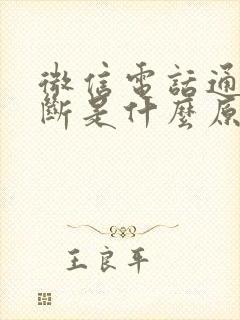 微信電話通
斷是什麼原
王良平